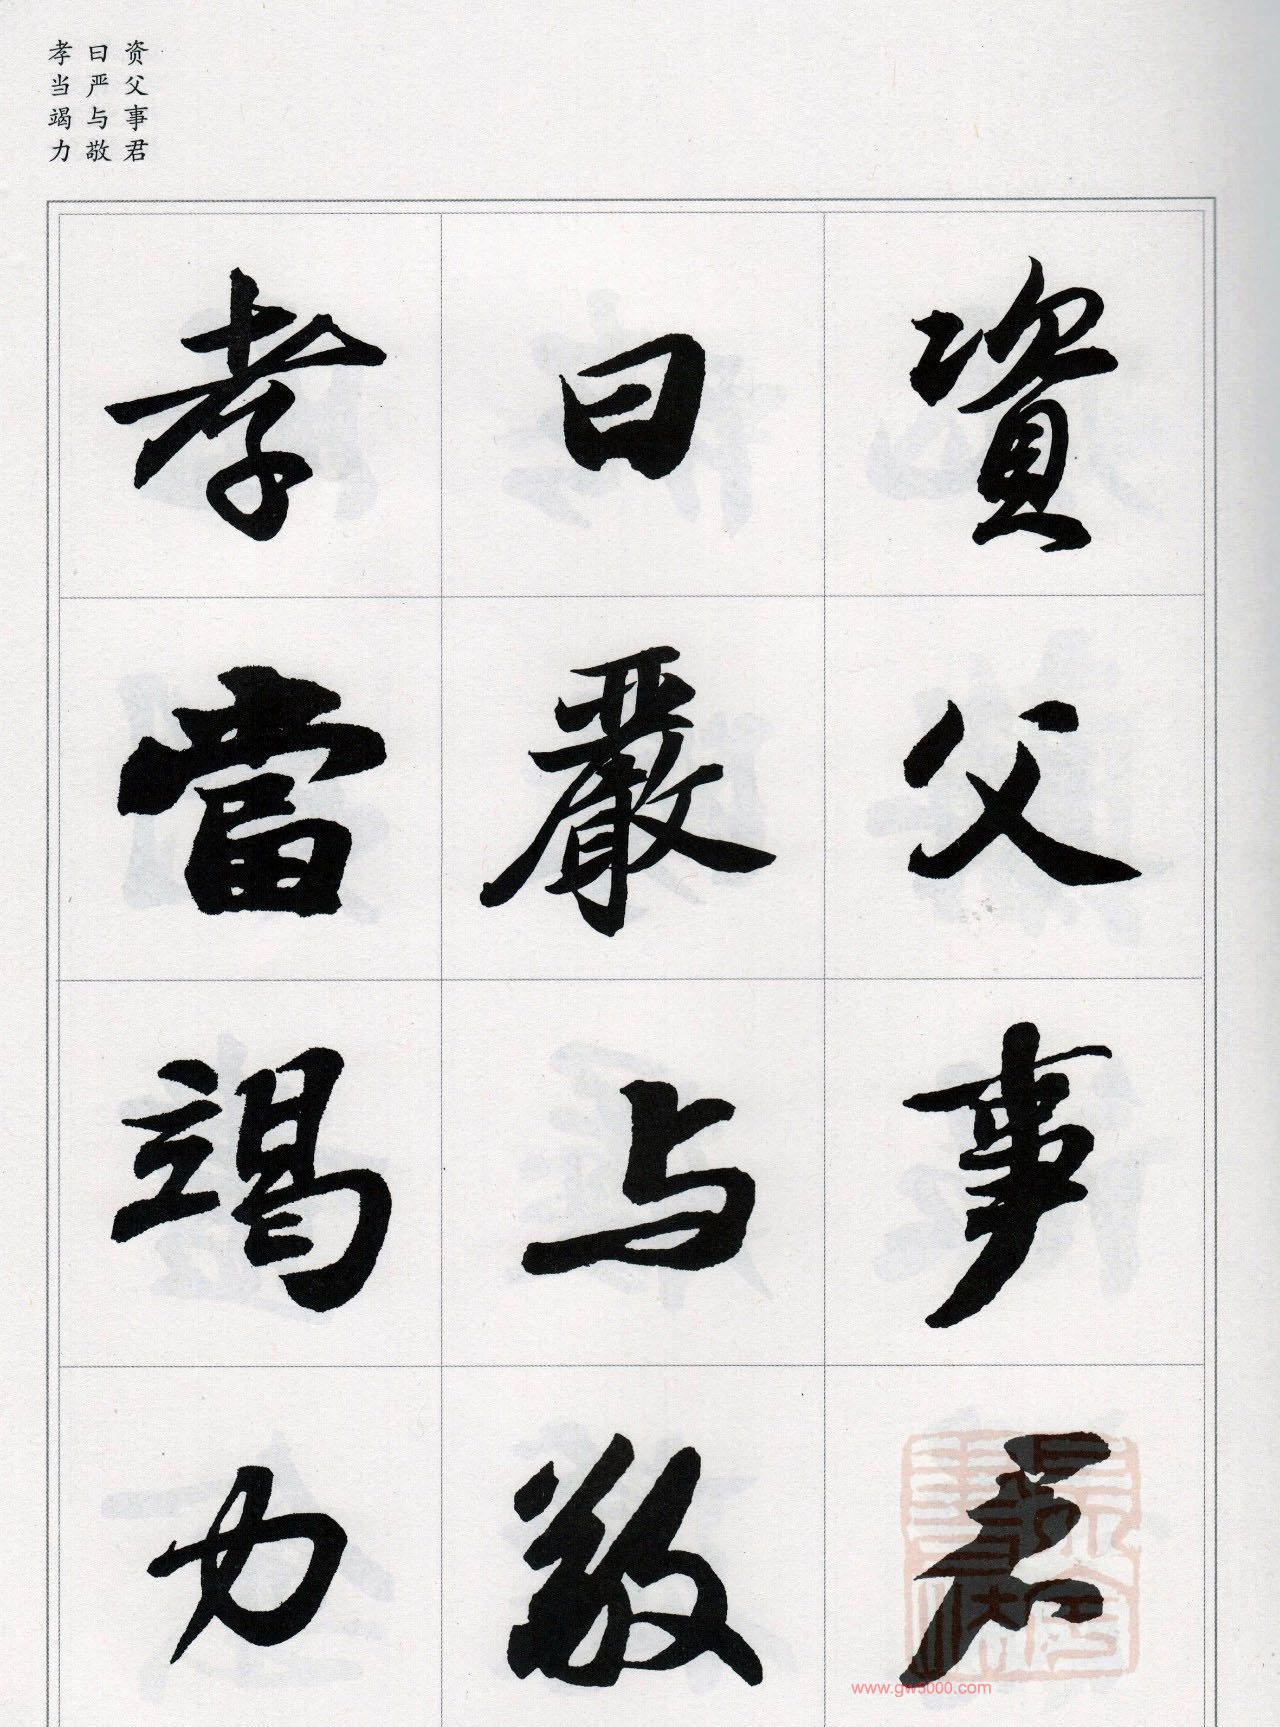 资父事君
曰严与敬
孝当竭力
資父事君
曰嚴与敬
孝當竭力
www.gw5000.com